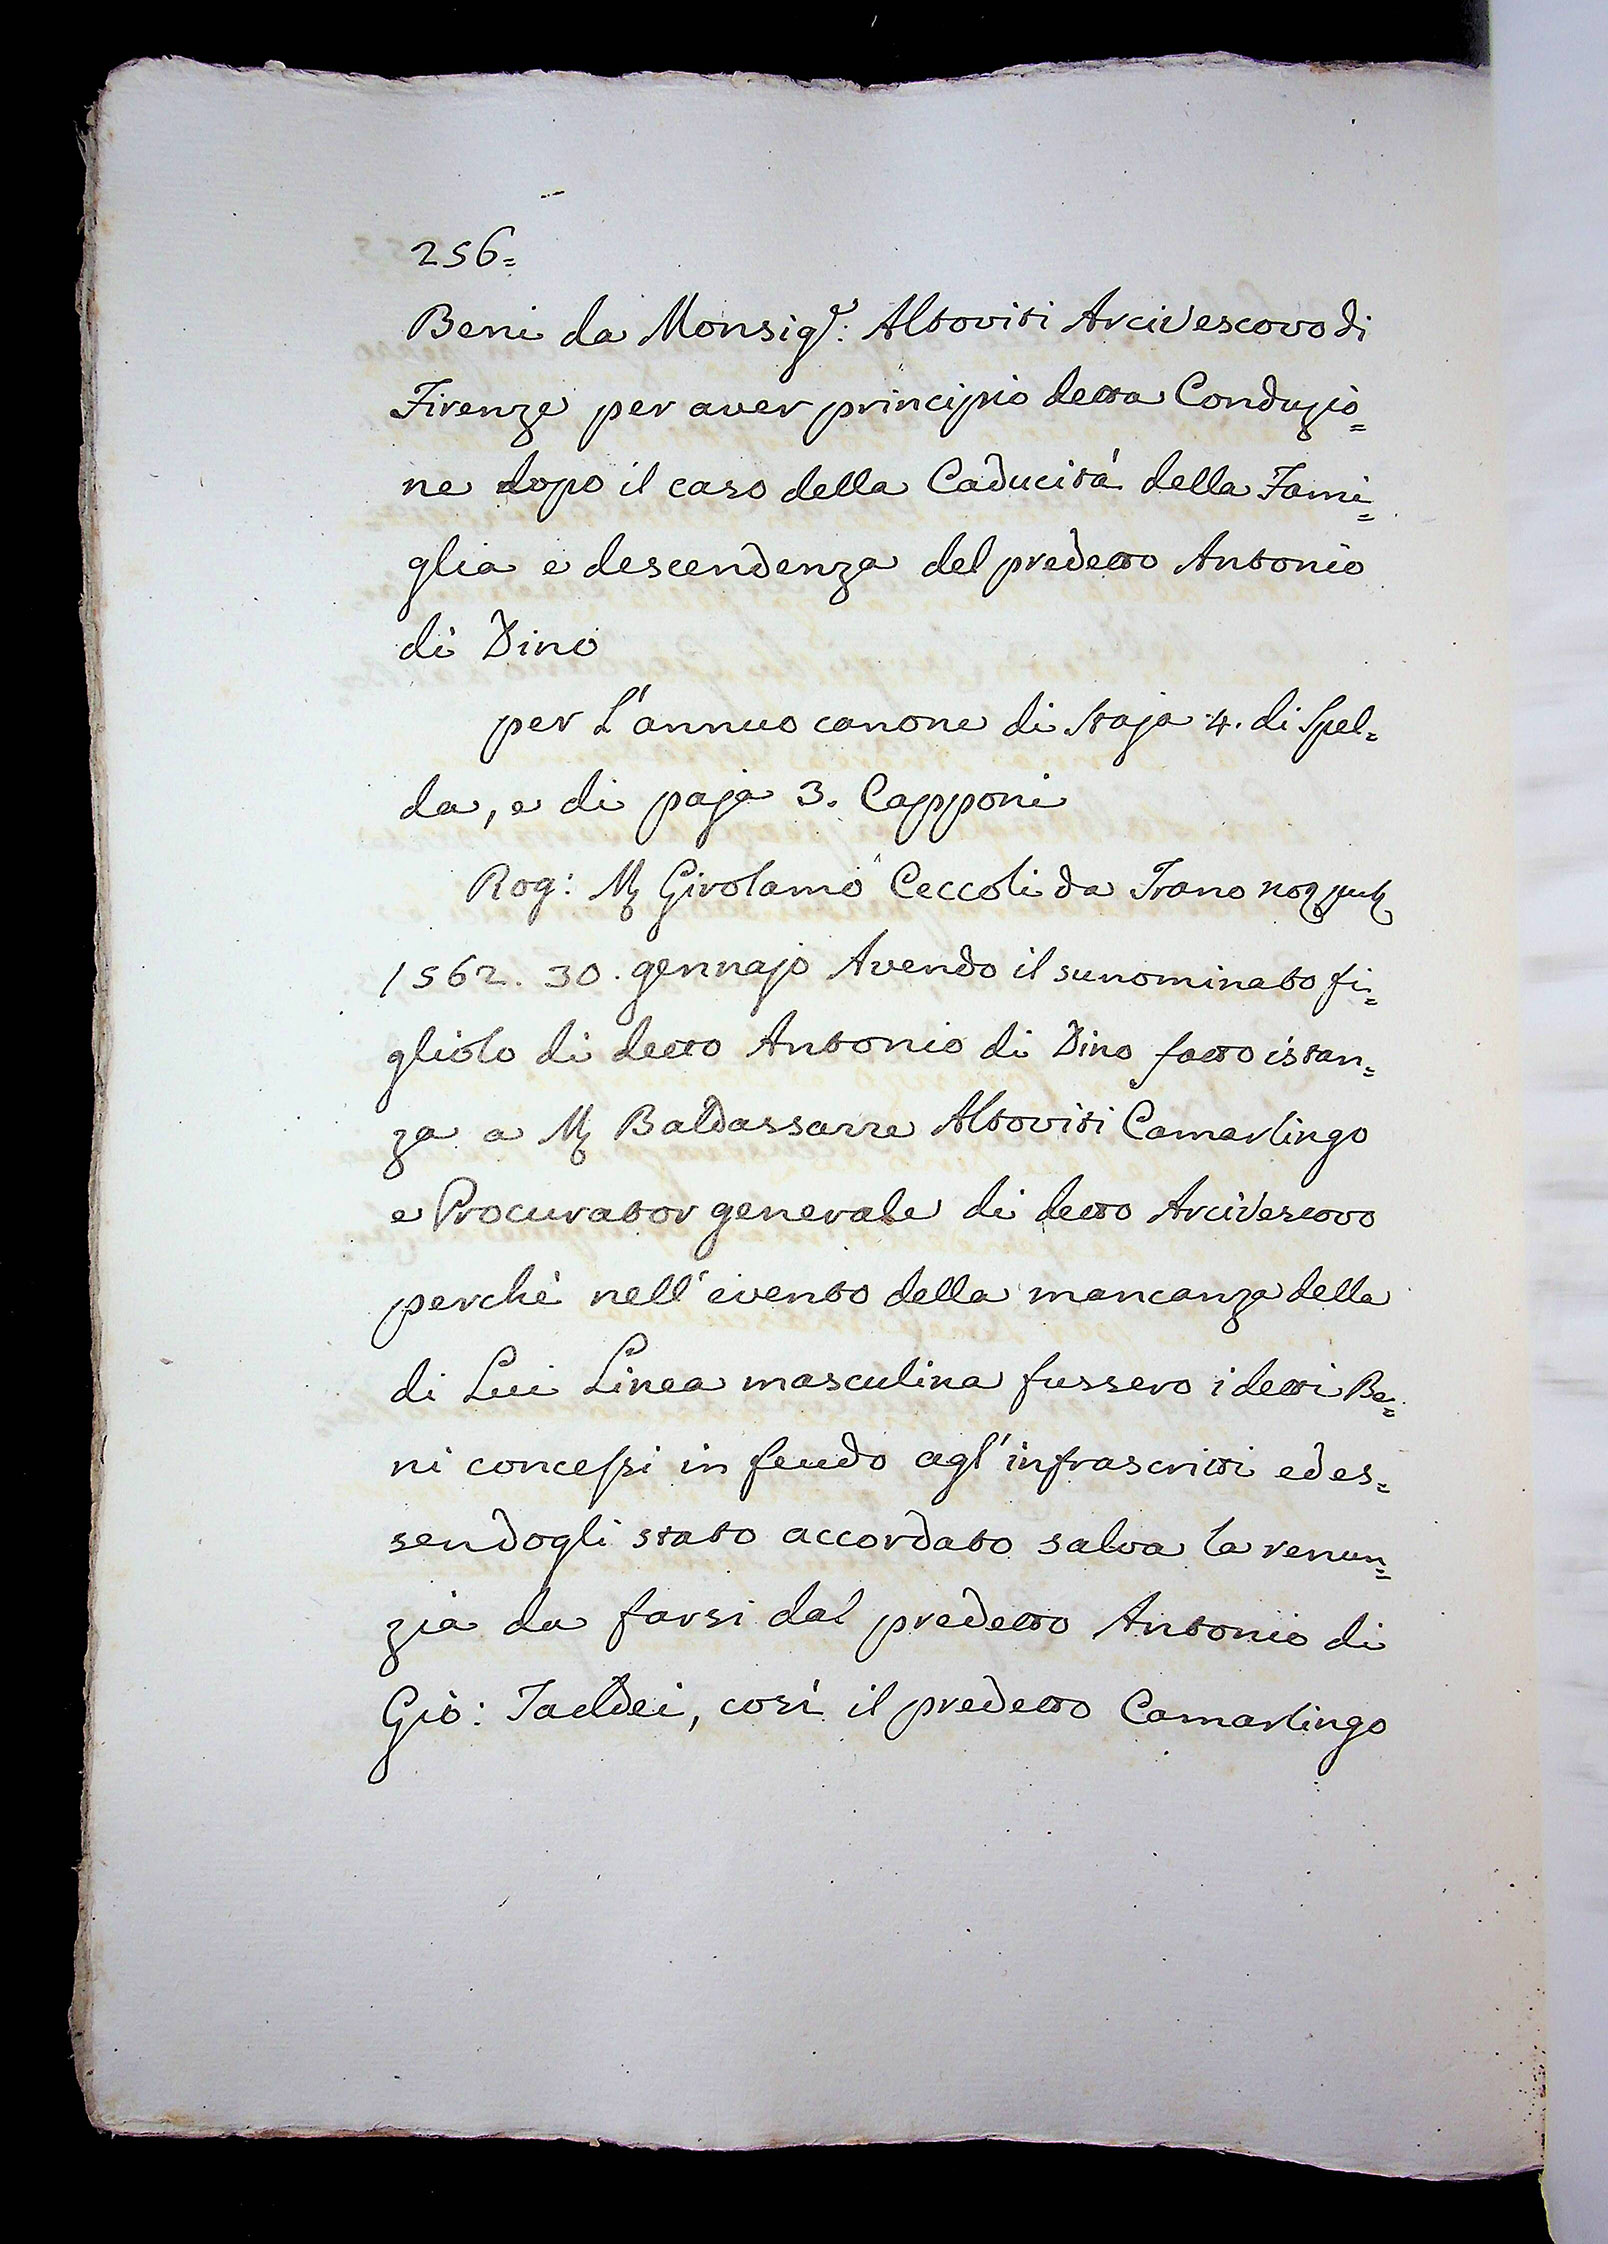 256=
Beni da Monsig.r: Altoviti Arcivescovo di
Firenze per aver principio detta Conduzio=
ne dopo il caso della Caducità della Fami=
glia e descendenza del predetto Antonio
di Dino
per L'annuo canone di Staja 4. di Spel=
da, e di paja 3. Capponi
Rog: M Girolamo Ceccoli da Trano not pub
1562. 30. gennajo Avendo il sunominato fi=
gliolo di detto Antonio di Dino fatto istan=
za a M Baldassarre Altoviti Camarlingo
e Procurator generale di detto Arcivescovo
perchè nell'evento della mancanza della
di Lui Linea masculina fussero i detti Be=
ni concessi in feudo agl'infrascritti ed es=
sendogli stato accordato salva la renun=
zia da farsi dal predetto Antonio di
Gio: Taddei, così il predetto Camarlingo